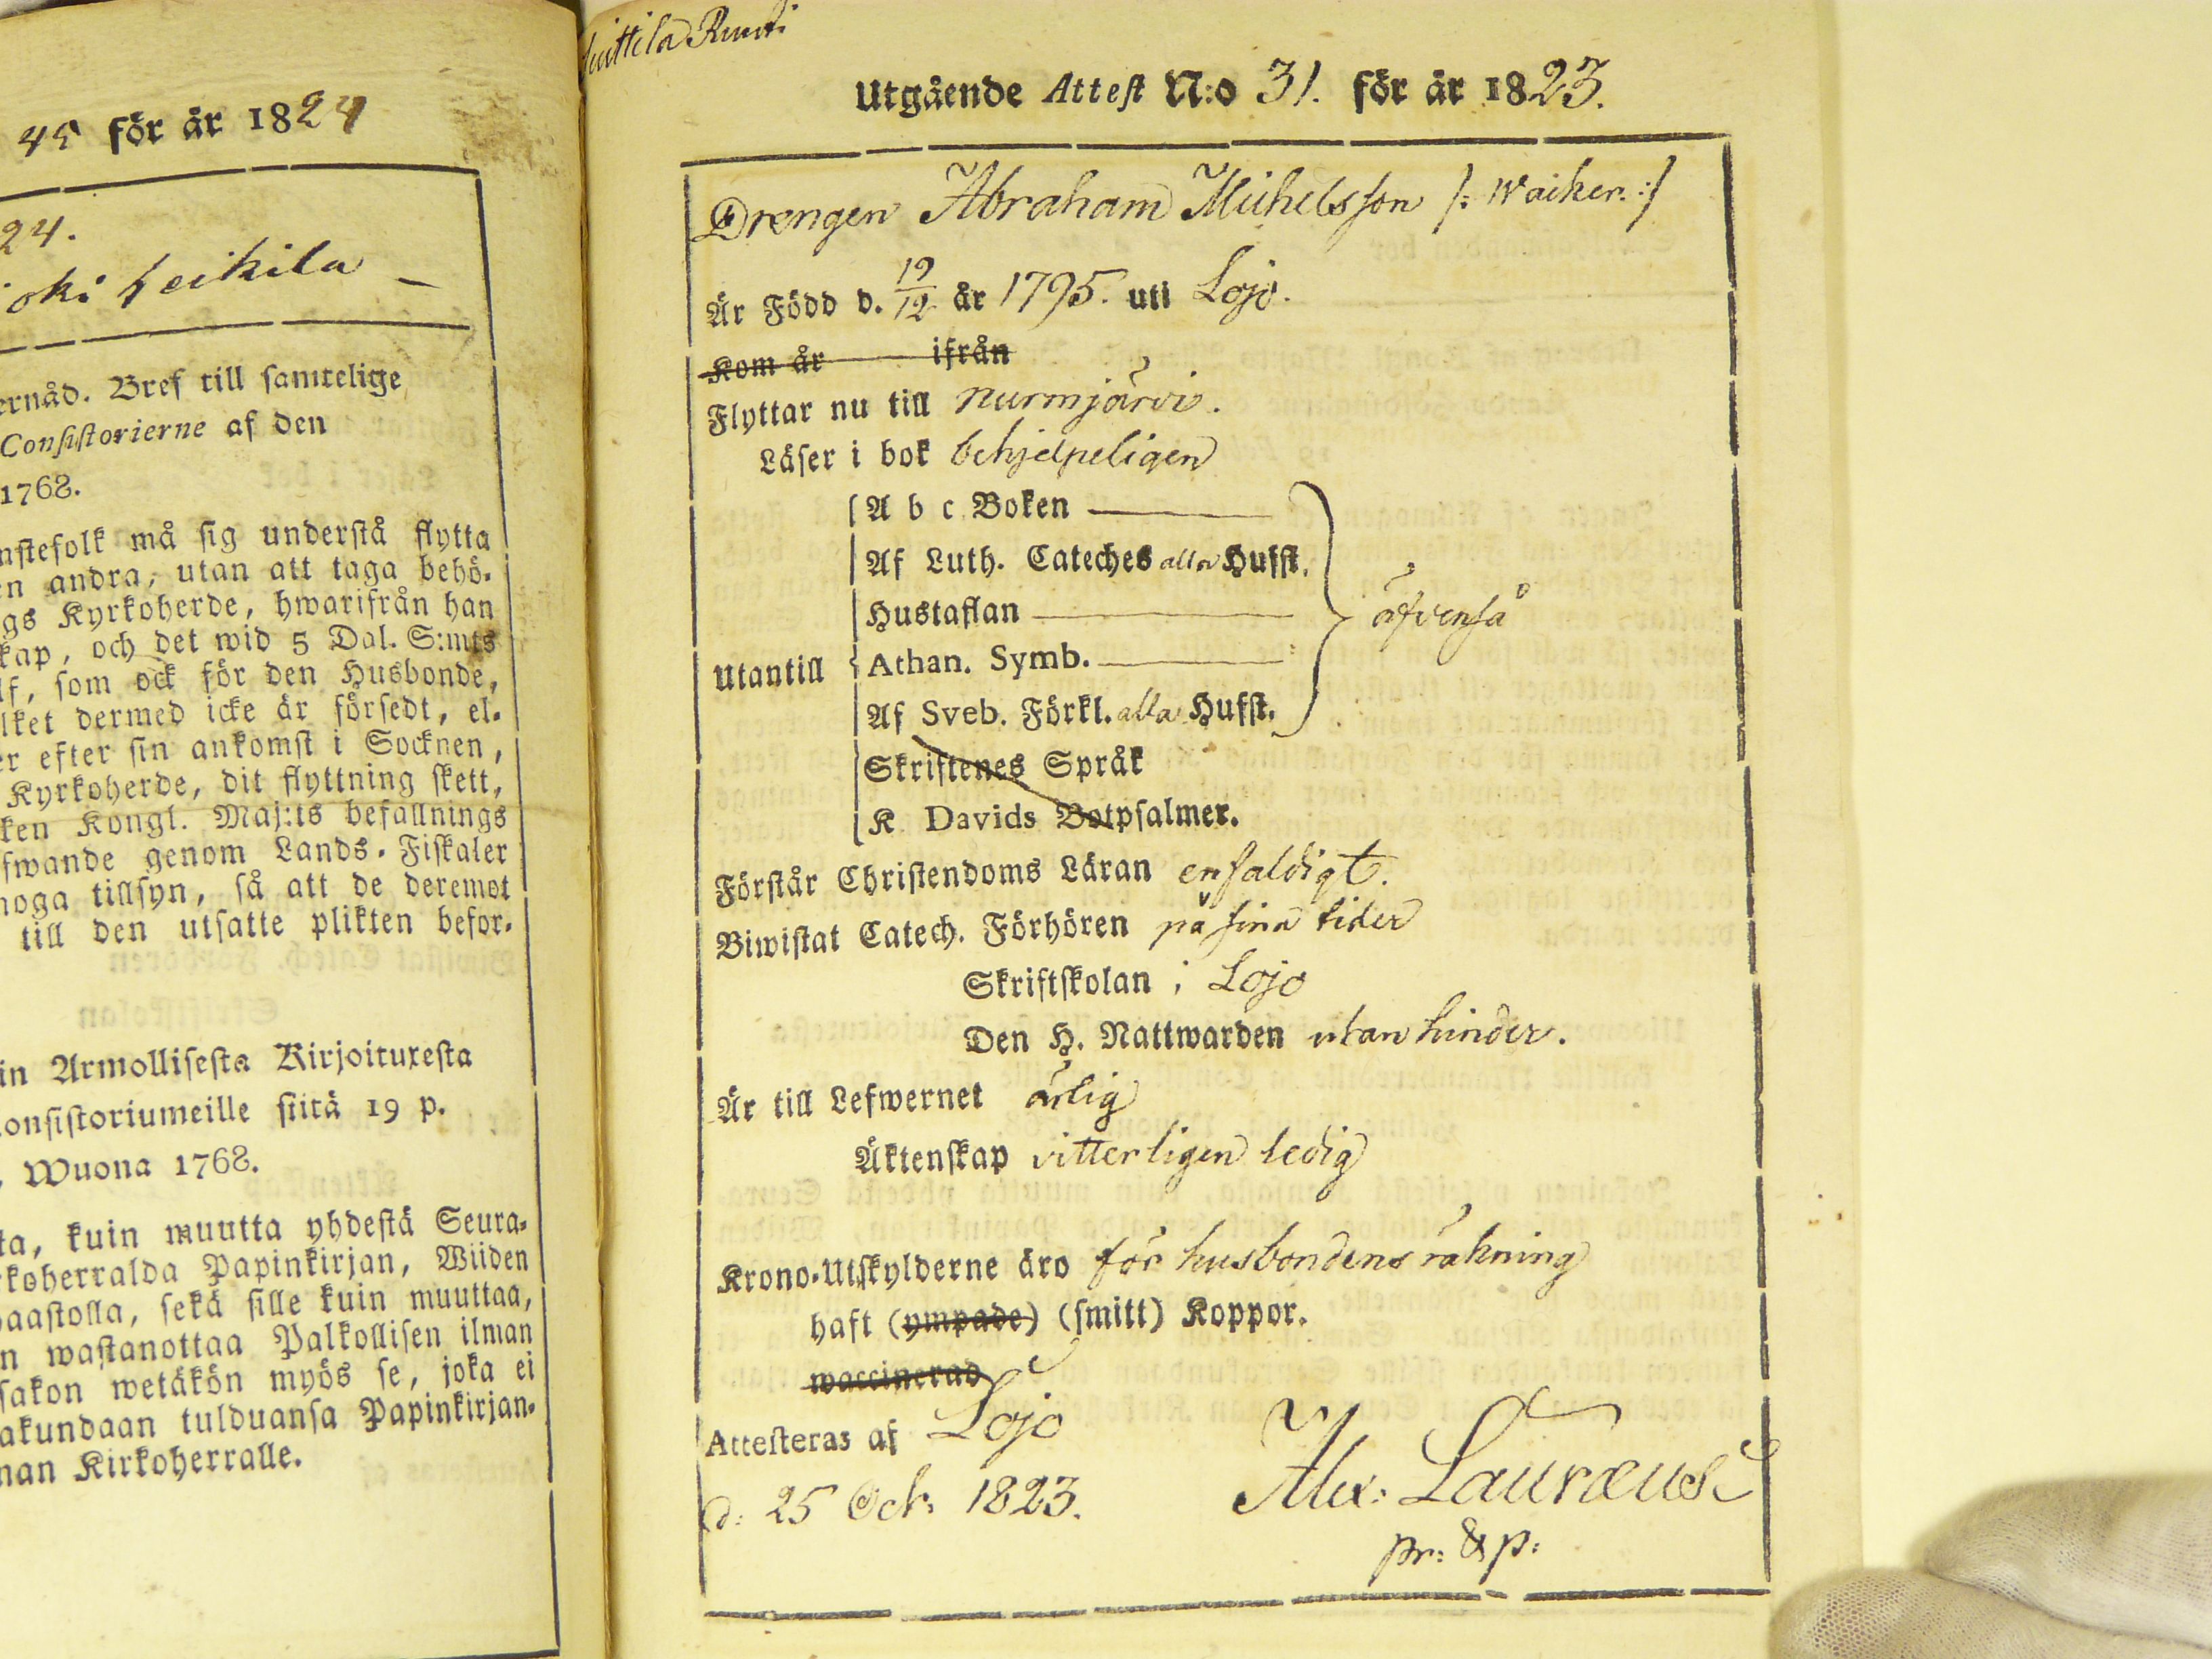 45 för år 1824
24.
oki heikila
ernåd. Bref till samtelige
Consistorierne af den
1768.
nstefolk må sig understå flytta
en andra, utan att taga behö-
gs Kyrkoherde, hwarifrån han
kap, och det wid 5 Dal. S:mts
lf, som ock för den Husbonde,
lket dermed icke är försedt, el-
er efter sin ankomst i Socknen,
Kyrkoherde, dit flyttning skett,
ken Kongl. Maj:ts befallnings
fwande genom Lands-Fiskaler
noga tillsyn, så att de deremot
till den utsatte plikten befor-
in Armollisesta Kirjoituxesta
onsistoriumeille siitä 19 p.
Wuona 1768.
ta, kuin muutta yhdestä Seura-
koherralda Papinkirjan, Wiiden
aastolla, sekä sille kuin muuttaa,
n wastanottaa Palkollisen ilman
sakon wetäkön myös se, joka ei
akundaan tulduansa Papinkirjan-
nan Kirkoherralle.
Utgående Attest N:o 31. för år 1823.
Drengen Abraham Michelsson /: Waiker :/
Är Född d. 19/12 år 1795. uti Lojo.
Kom år ifrån
Flyttar nu till Nurmjärvi.
Läser i bok behjelpeligen
A b c Boken
Af Luth. Cateches alla Hufst.
Hustaflan
äfvenså
Utantill Athan. Symb.
Af Sveb. Förkl. alla Hufst.
Skriftenes Språk
K Davids Botpsalmer.
Förstår Christendoms Läran enfaldigt.
Biwistat Catech. Förhören på sina tider
Skriftskolan i Lojo
Den H. Nattwarden utan hinder.
Är till Lefwernet ärlig
Äktenskap vitterligen ledig
Krono-Utskylderne äro för husbondens räkning
haft (ympade) (smitt) Koppor.
waccinerad
Attesteras af Lojo
d: 25 Oct: 1823.
Alex: Lauræus
pr: & p: